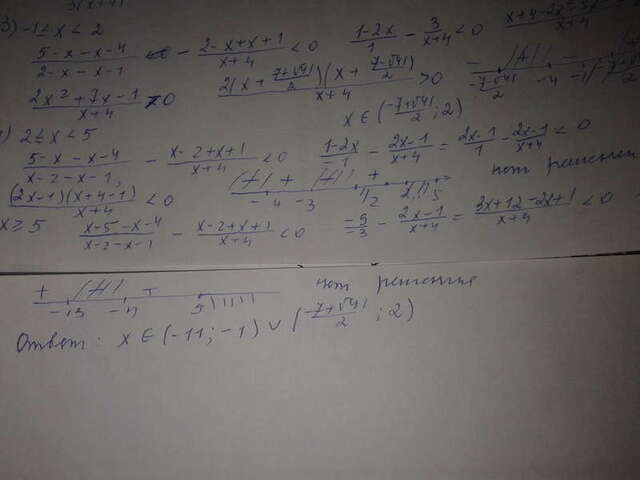 3) -1≤x<2
(5-x-x-4)/(2-x-x-1) - (2-x+x+1)/(x+4) < 0   (1-2x)/1 - 3/(x+4) < 0
(2x²+7x-1)/(x+4) > 0   2(x + (7+√41)/2)(x + (7-√41)/2)/(x+4) > 0
x ∈ ((-7+√41)/2; 2)
2≤x<5
(5-x-x-4)/(x-2-x-1) - (x-2+x+1)/(x+4) < 0   (1-2x)/(-1) - (2x-1)/(x+4) = (2x-1)/1 - (2x-1)/(x+4) < 0
(2x-1)(x+4-1)/(x+4) < 0   -4 -3 1/2 2 5   нет решений
x≥5   (x-5-x-4)/(x-2-x-1) - (x-2+x+1)/(x+4) < 0   (-9)/(-3) - (2x-1)/(x+4) = (3x+12-2x+1)/(x+4) < 0
+ - + -13 -4 5   нет решения
Ответ: x ∈ (-11; -1) ∪ ((-7+√41)/2; 2)